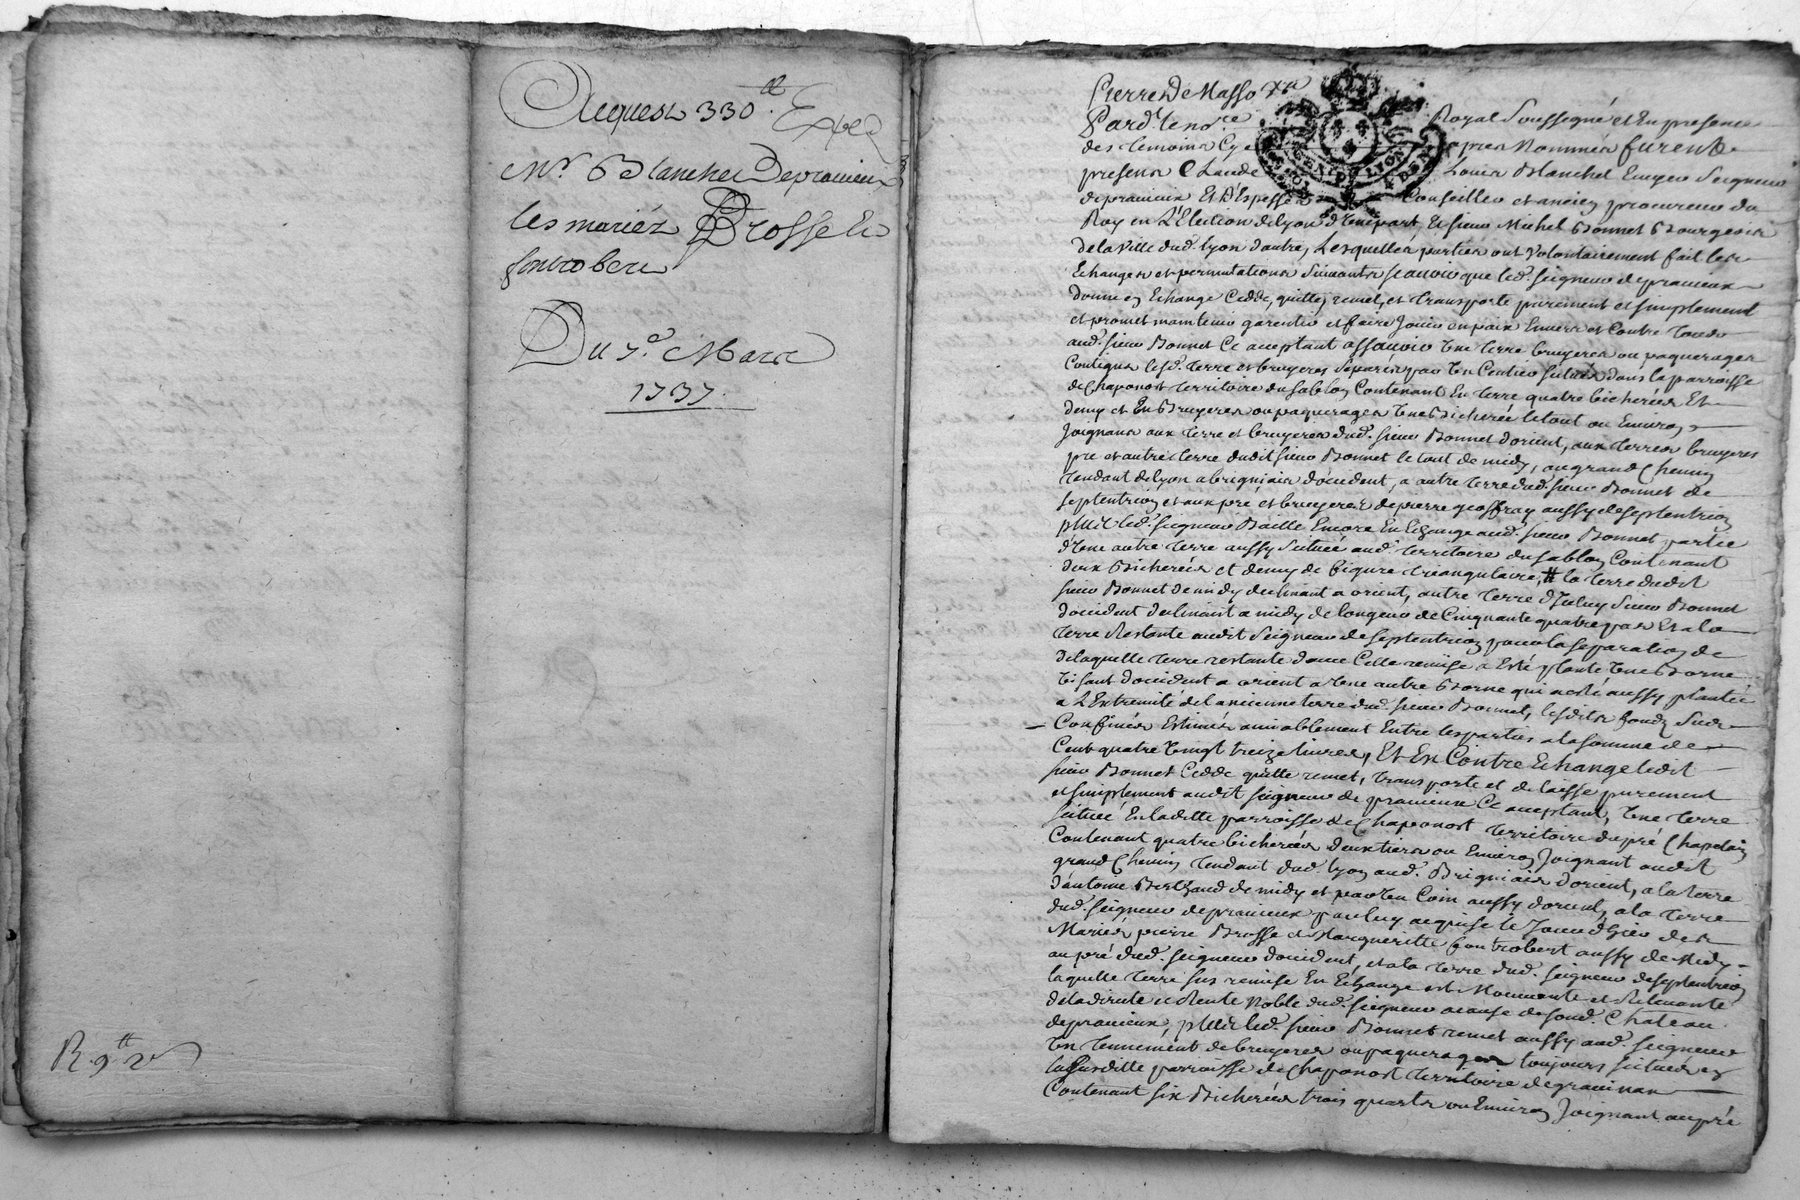 Acquest 330 ll. Exped
Mr. Blanchet Depravieux
les mariéz Brosse et
fontrobert
Du 7e. Mars
1737.
R 9 ll 2 s
Pierre De Masso
Pard. le nore. Royal Soussigné et En presence
des temoins Cy apres Nommés furent
presens Claude Louis Blanchet Ecuyer Seigneur
depravieux Et D'Espesse Conseiller et ancien procureur du
Roy en L'Election de lyon d'Une part, Et sieur Michel Bonnet Bourgeois
de la Ville dud. lyon d'autre, Lesquelles parties ont Volontairement fait les
Echanges et permutations Suivants scavoir que led. seigneur depravieux
donne en Echange Cedde, quitte, remet, et transporte purement et simplement
et promet maintenir garentir et faire Jouir en paix Envers et Contre tous
aud. sieur Bonnet Ce aceptant assavoir Une terre bruyeres ou paquerages
Contigus lesd. terre et bruyeres séparés par Un Sentier situés dans la parroisse
de Chaponost territoire du sablon Contenant En terre quatre bicherées Et
demy et En Bruyeres ou paquerages Une Bicherée le tout ou Environ
Joignans aux terre et bruyeres dud. sieur Bonnet d'orient, aux terres bruyeres
pre et autre terre dudit sieur Bonnet le tout de midy, au grand Chemin
tendant de lyon a brigniais d'ocident, a autre terre dud. sieur Bonnet de
septentrion et aux pré et bruyeres de pierre geoffray aussy de septentrion
plus led. seigneur Baille Encore En Echange aud. sieur Bonnet partie
d'Une autre terre aussy Scituée aud. territoire du sablon Contenant
deux Bicherées et demy de figure triangulaire, # la terre dudit
sieur Bonnet de midy declinant a orient, autre terre d'Iceluy Sieur Bonnet
d'ocident declinant a midy de longeur de Cinquante quatre pas Et a la
terre Restante audit Seigneur de septentrion pour la separation de
de laquelle terre restante d'avec Celle remise a Esté plante Une Borne
Visant d'ocident a orient a Une autre Borne qui a esté aussy plantée
a L'Extremité de l'ancienne terre dud. sieur Bonnet, lesdits fonds Sus
Confinés Estimés amiablement Entre les parties a la somme de
Cent quatre Vingt treize livres, Et En Contre Echange ledit
sieur Bonnet Cedde quitte remet, transporte et delaisse purement
et simplement audit seigneur de pravieux Ce aceptant, Une terre
scituée En ladite parroisse de Chaponost territoire du pré Chapelain
Contenant quatre bicherées deux tiers ou Environ Joignant audit
grand Chemin tendant dud. lyon aud. Brigniais d'orient, a la terre
d'antoine Berthaud de midy et par Un Coin aussy d'orient, a la terre
dud. seigneur depravieux par luy acquise le Jour d'hier des
Mariés pierre Brosse et Margueritte fontrobert aussy de Midy
au pré dud. seigneur d'ocident, et a la terre dud. seigneur de septentrion
laquelle terre sus remise En Echange est Mouvante et Relevante
de la directe et Rente Noble dud. seigneur a cause de son d. Chateau
depravieux, plus led. sieur Bonnet remet aussy aud. seigneur
Un tennement de bruyeres ou paquerages toujours scitués en
la susditte parroisse de Chaponost territoire de gravinan
Contenant six Bicherées trois quarts ou Environ Joignant au pré